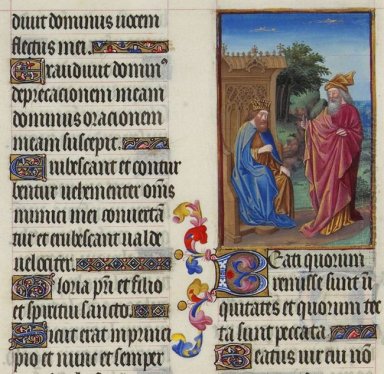 diuit dominus uocem
fletus mei.
Exaudiuit domin⁹
deprecationem meam
dominus orationem
meam suscepit
Erubescant et contur
bentur uehementer om̄s
inimici mei conuertā
tur et erubescant ualde
uelociter.
Gloria pr̄i et filio
et spiritui sancto.
Sicut erat in princi
pio et nunc et semper
Beati quorum
remisse sunt ī
quitates et quorum tec
ta sunt peccata
Beatus uir cui nō